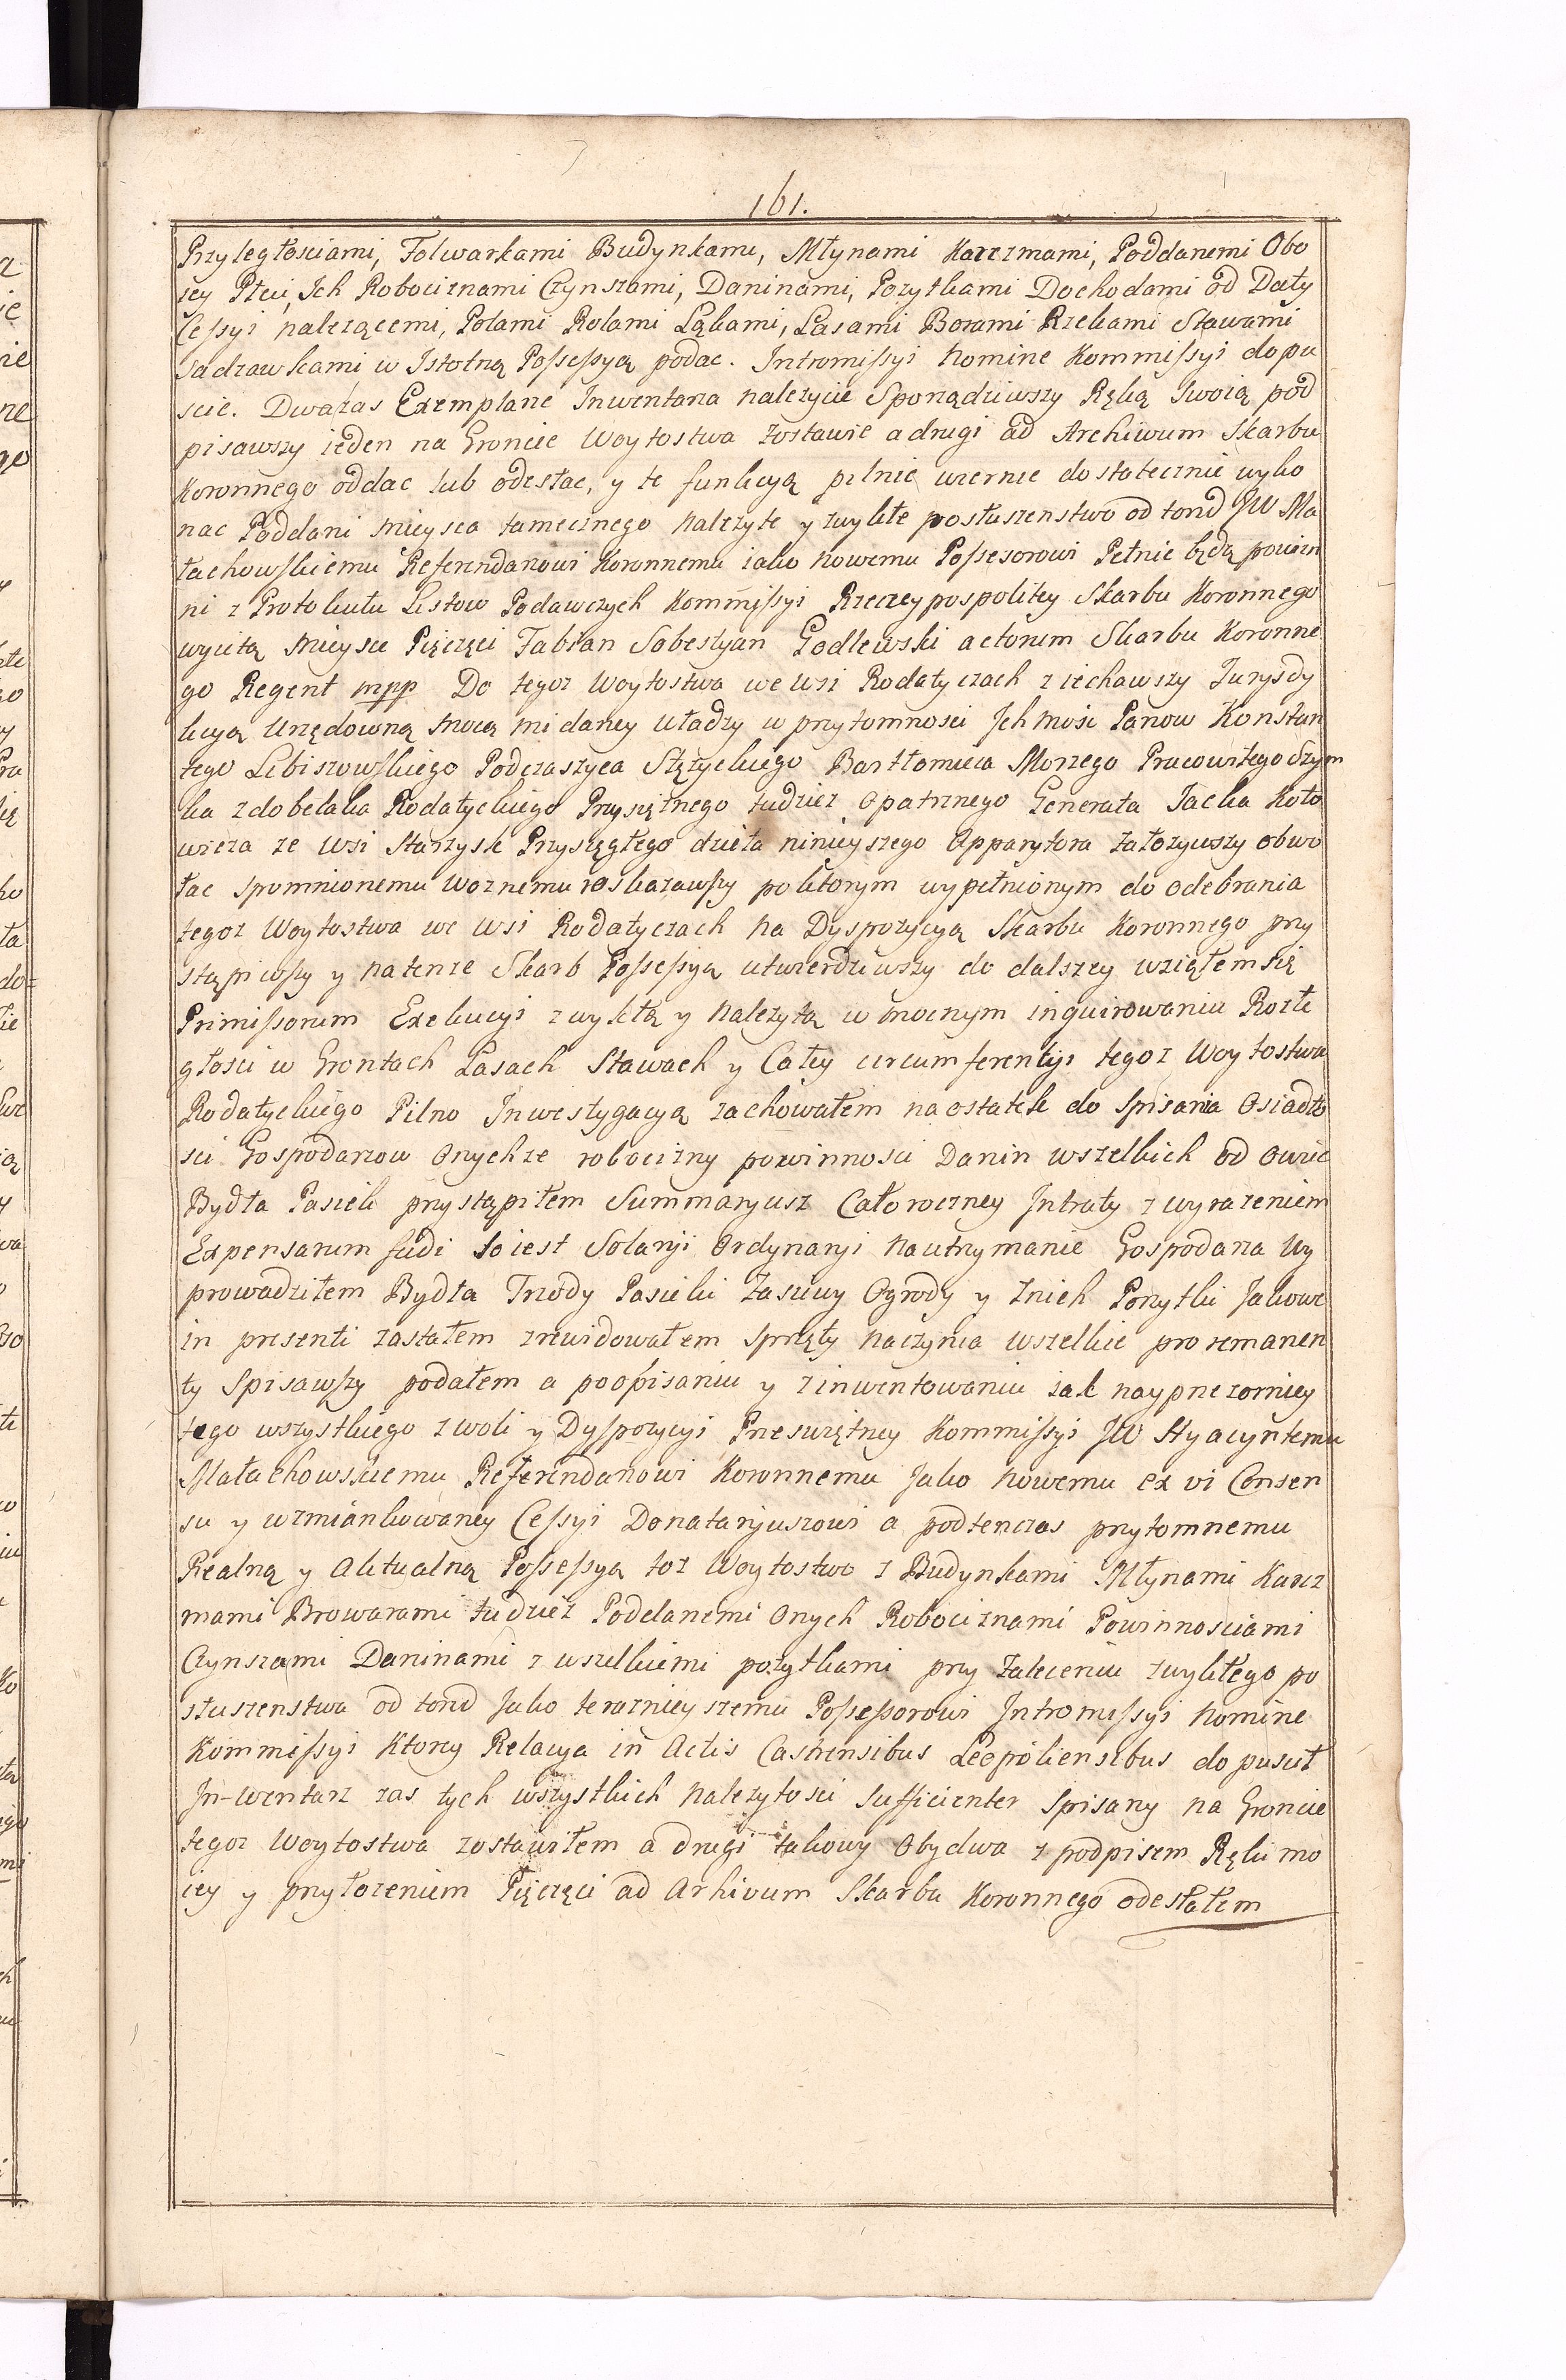 161.
Przyległościami, Folwarkami Budynkami, Młynami Karczmami, Poddanemi Obo
iey Płci, Ich Robociznami Czynszami, Daninami, Pozytkami Dochodami od Daty
Cessyi nalezącemi, Polami Rolami Łąkami, Lasami Borami Rzekami Stawami
Sadzawkami w Istotną Possessyą podac. Intromissyi Nomine Kommissyi dopu
scic. Dwa zas Exemplarze Inwentarza nalezycie Sporządziwszy Ręką Swoią pod
pisawszy ieden na Groncie Woytostwa zostawic a drugi ad Archiwum Skarbu
Koronnego oddac lub odesłac, y te funkcyą pilnie wiernie dostatecznie wyko
nac Poddani mieysca tamecznego nalezyte y zwykłe posłuszenstwo od tond JW Ma
łachowskiemu Referendarzowi Koronnemu iako nowemu Possesorowi Pełnic będą powin
ni z Protokułu Listow Podawczych Kommissyi Rzeczeypospolitey Skarbu Koronnego
wyięta mieysce Pięczęci Fabian Sobestyan Godlewski actorum Skarbu Koronne
go Regent mpp Do tegoz Woytostwa we wsi Rodatyczach ziechawszy Jurysdy
kcyą Urzędowną mocą mi daney władzy w przytomnosci Jch mosc Panow Konstan
tego Lebiszowskiego Podczaszyca Stęzyckiego Bartłomieia Morzego Pracowitego Szym
ka zdobelaka Rodatyckiego Przysięznego tudziez opatrznego Generała Jacka Koło
wieza ze wsi Starzysk Przysięgłego dzieła ninieyszego Apparytora założywszy obwo
łac spomnionemu woznemu roskazawszy po ktorym wypełnionym do odebrania
tegoz Woytostwa we wsi Rodatyczach na Dyspozycyą Skarbu Koronnego przy
stąpiwszy y na tenze Skarb Possessyą utwierdziwszy do dalszey wziąłem się
Primissorum Exekucyi zwykłą y nalezytą w mocnym inquirowaniu Rozle
głosci w Grontach Lasach Stawach y Całey circumferencyi tegoz Woytostwa
Rodatyckiego Pilno Inwestygacyą zachowałem na ostatek do Spisania Osiadło
sci Gospodarzow Onychze robocizny powinnosci Danin wszelkich od owiec
Bydła Pasiek przystąpiłem Summaryusz Całoroczney Jntraty z wyrazeniem
Expensarum fudi to iest Solaryi Ordynaryi na utrzymanie Gospodarza Wy
prowadziłem Bydła Trzody Pasieki Zasiewy Ogrody y Znich Porzytki Jakowe
in presenti zastałem zrewidowałem Sprzęty naczynia wszelkie pro remanen
ty Spisawszy podałem a po opisaniu y zinwentowaniu iak nayprzezorniey
tego wszystkiego z woli y Dyspozycyi Prześwietney Kommissyi JW Hyacyntemu
Małachowskiemu Referendarzowi Koronnemu Jako nowemu ex vi Consen
su y wzmiankowaney Cessyi Donataryuszowi a podtenczas przytomnemu
Realną y Aktualną Possessyą toz Woytostwo z Budynkami Młynami Karcz
mami Browarami tudziez Poddanemi Onych Robociznami Powinnosciami
Czynszami Daninami z wszelkiemi pozytkami przy Zaleceniu zwykłego po
słuszenstwa od tond Jako terazniey szemu Possessorowi Jntromissyi nomine
Kommissyi Ktorey Relacya in Actis Castrensibus Leopoliensibus dopuscił
In-wentarz zas tych wszystkich nalezytosci sufficienter Spisany na Groncie
tegoz Woytostwa zostawiłem a drugi takowy Obydwa z podpisem Ręki mo
iey y przyłozeniem Pięczęci ad Arhivum Skarbu Koronnego odesłałem